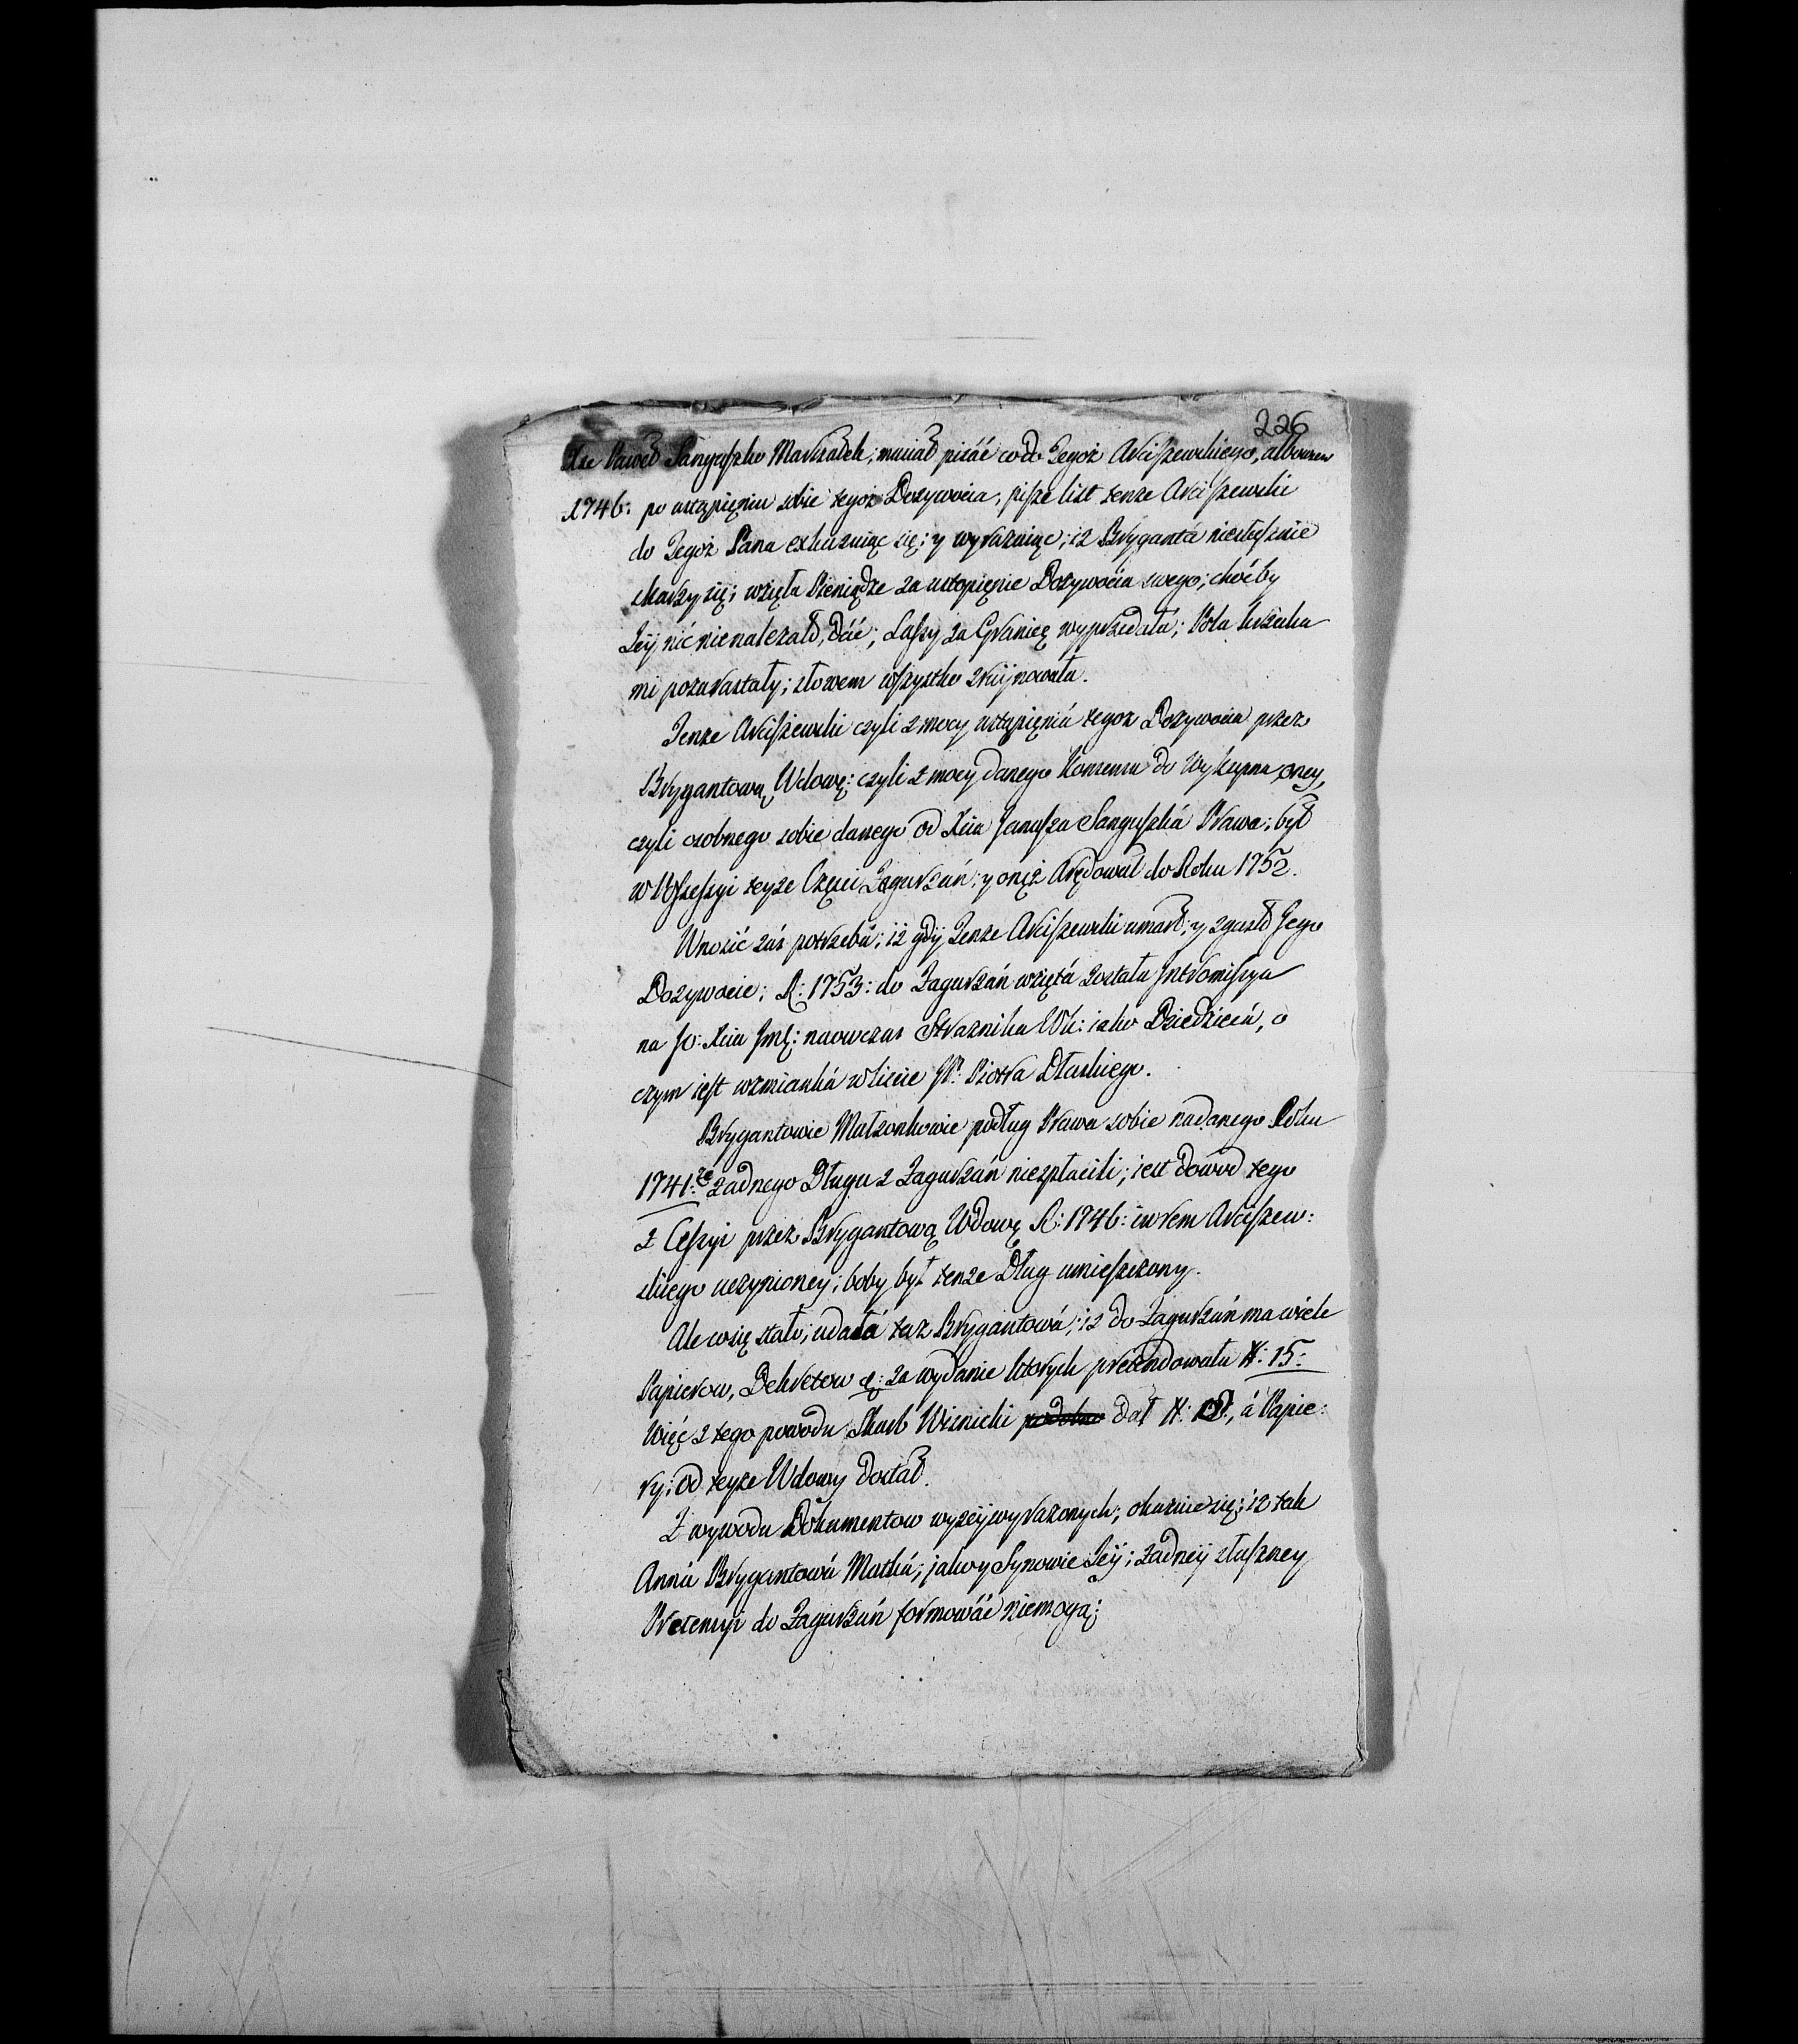 226
Xże Paweł Sanguszko Marszałek; musiał pisáć co do Tegoż Arciszewskiego, albowiem
1746: po ustąpięniu sobie tegoż Dożywocia, pisze list tenże Arciszewski
do Tegoż Pana exkuzuiąc się; y wyrażaiąc; iż Brygantá niesłusznie
skarży się; wzięła Pieniądze za ustąpięnie Dożywocia swego; choćby
Jeÿ nic nienależało, dáć; Lassy za Granicę wyprzedała; Pola krzaka
mi pozarastały; słowem wszystko zruÿnowała.
Tenże Arciszewski czyli z mocy ustąpięniá tegoż Dożywocia przez
Brygantową Wdowę; czyli z mocy danego Konsensu do Wykupna oney,
czyli osobnego sobie danego od Xcia Janusza Sanguszká Prawa; był
w Possessyi teyże Częsci Zagurzán; y onęż Arędował do Roku 1752.
Wnosić záś potrzebá; iż gdÿ Tenże Arciszewski umarł; y zgasło Jego
Dożywocie; R: 1753: do Zagurzán wziętá została Intromissya
na Jo: Xcia Jmć: naowczas Strażnika Wk: iako Dziedzicá, o
czym iest wzmianká w liscie JP. Piotra Dłuskiego.
Brygantowie Małżonkowie podług Prawa sobie nadanego Roku
1741: że żadnego Długu z Zagurzán niezpłacili; iest dowod tego
z Cessyi przez Brygantową Wdowę R: 1746: in rem Arciszew:
skiego uczynioney; boby był tenże Dług umieszczony.
Ale co się stało; udała taż Brygantowá; iż do Zagurzán ma wiele
Papierow, Dekretow &: za wydanie ktorych pretendowała #: 15:
Więc z tego powodu Skarb Wisnicki podobno dał #: , á Papie:
ry; od teyże Wdowy dostał.
Z wywodu Dokumentow wyżeÿwyrażonych; okazuie się; iż tak
Anná Brygantowá Matká; jako y Synowie Jeÿ; żadneÿ słuszney
Pretensyi do Zagurzán formowáć niemogą;